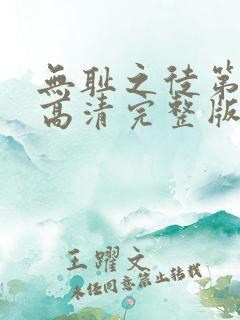 無耻之徒第
高清完整版
王躍文
未经同意禁止转载